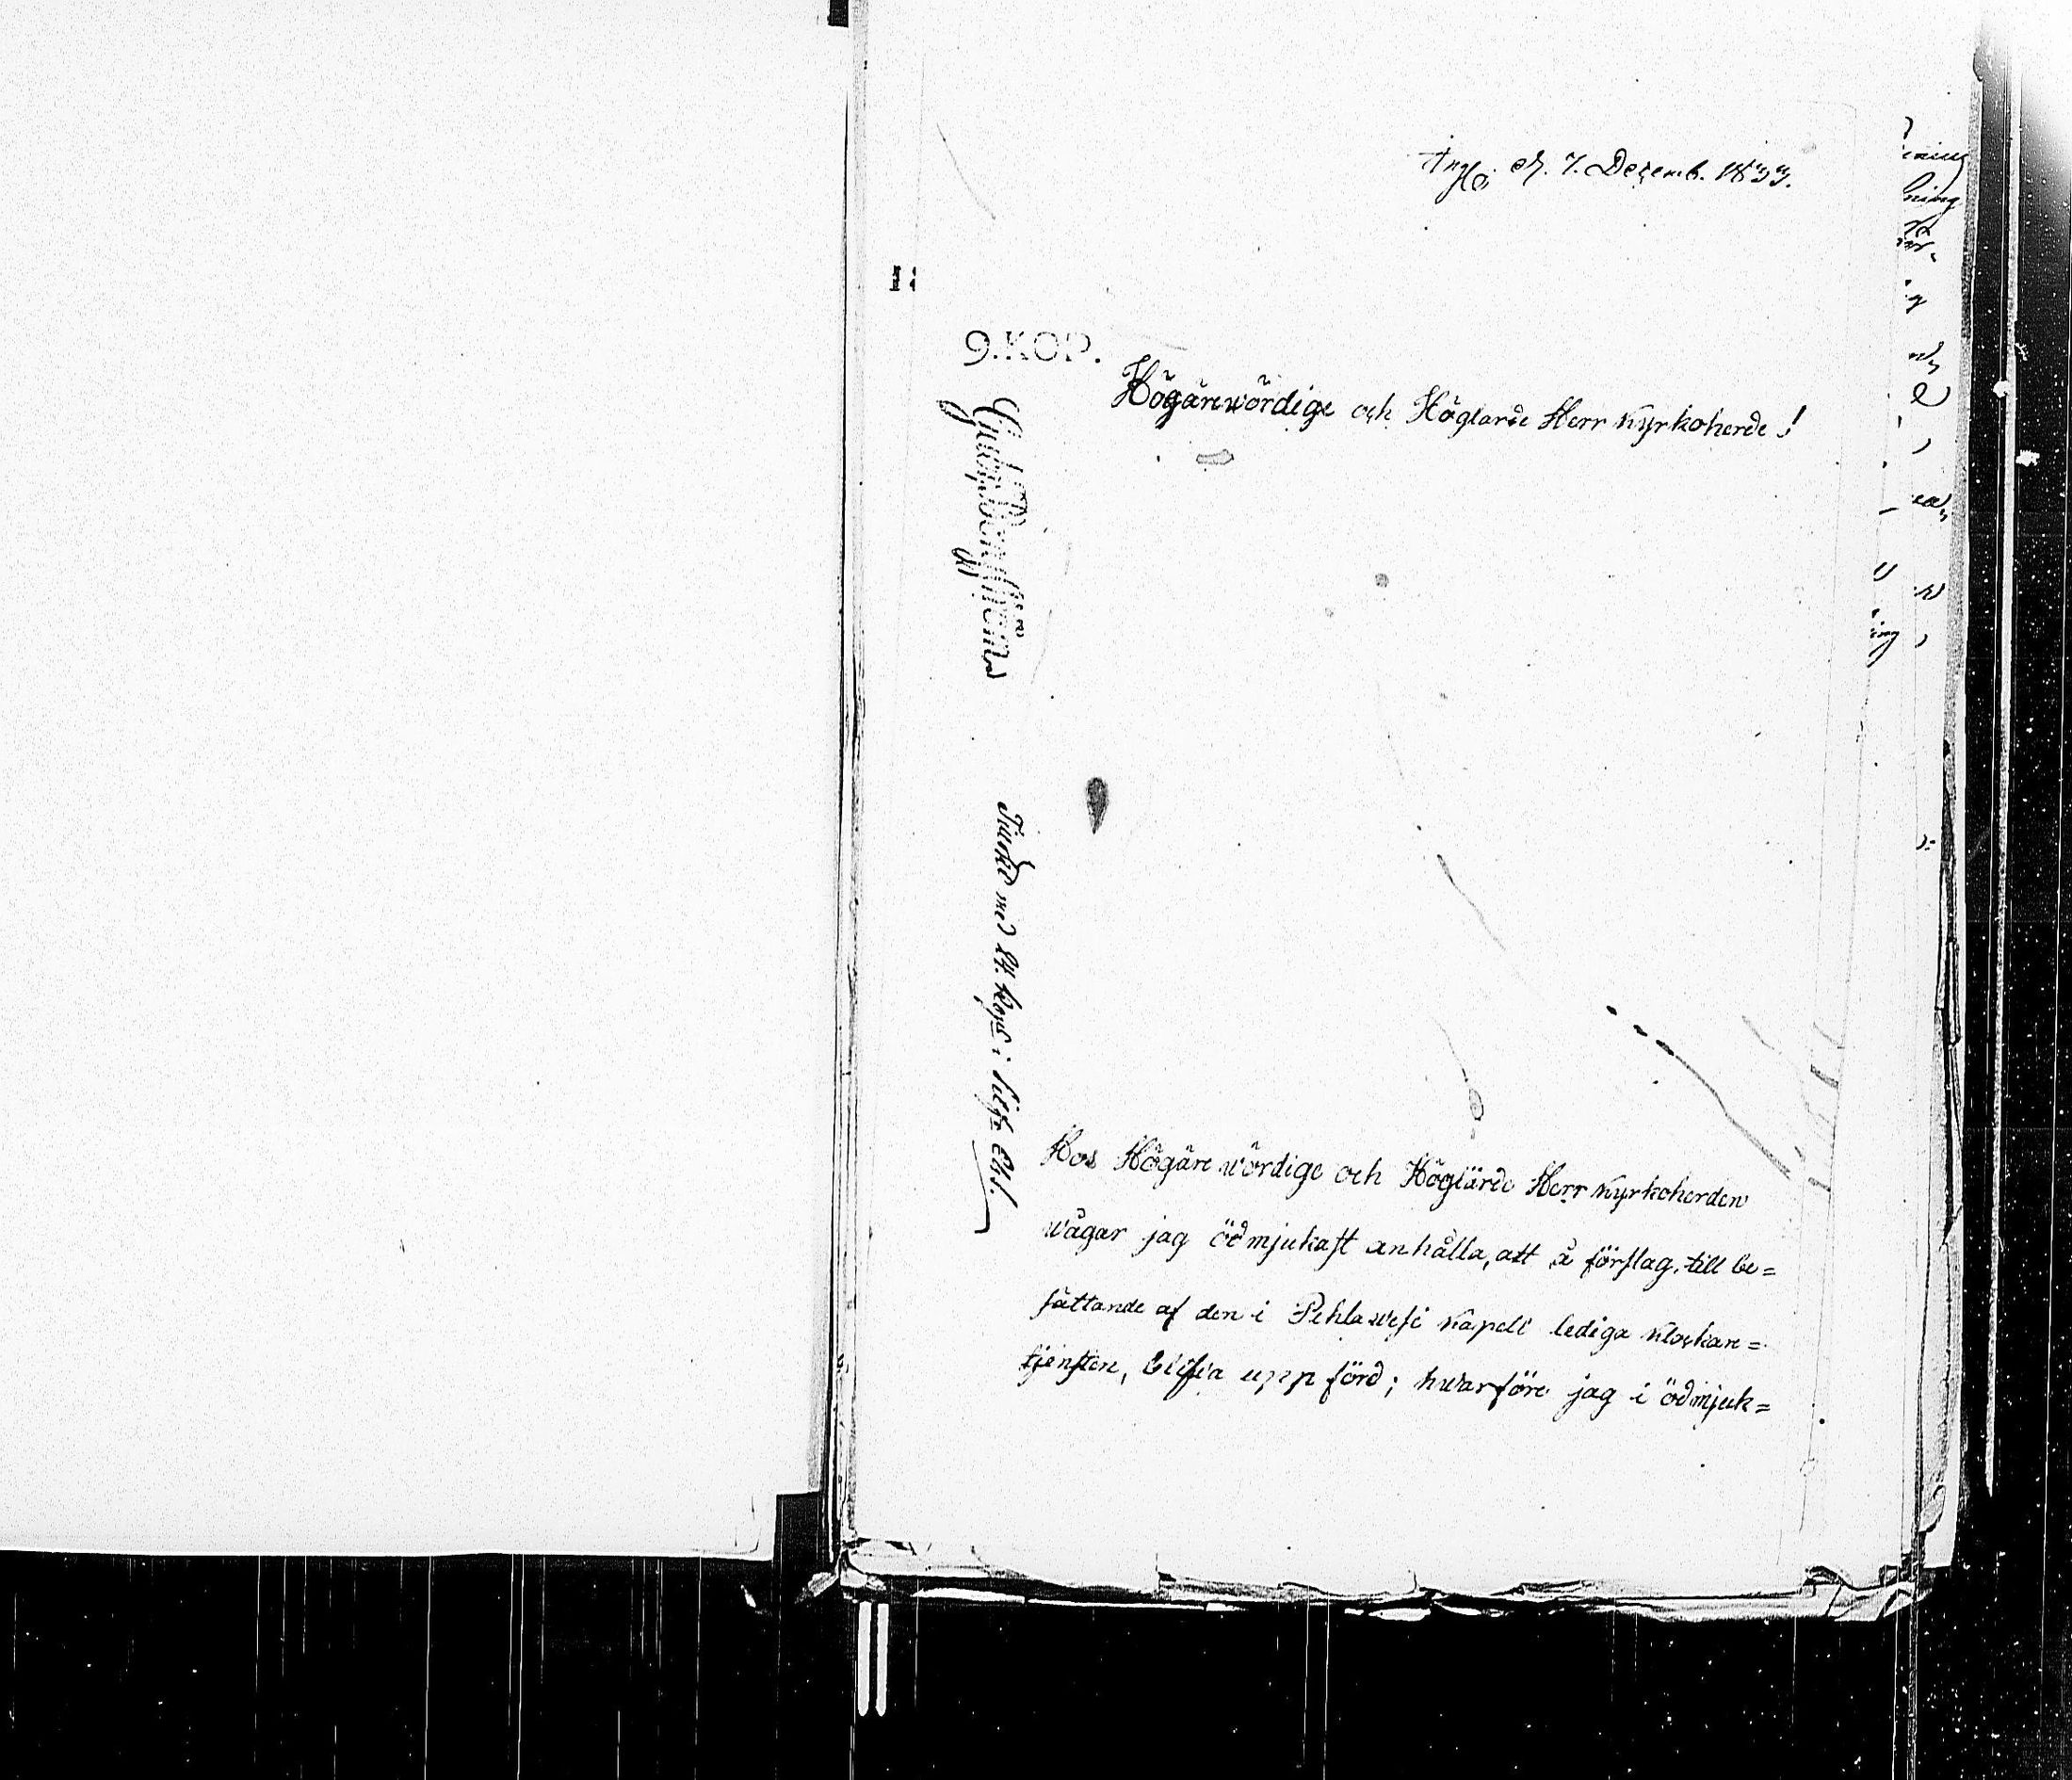 Ang. d. 7. Decemb. 1833.
9.KOP.
Högärewördige och Höglärde Herr Kyrkoherde!
med 24. Kop: i Silfr
Hos Högärewördige och Höglärde Herr Kyrkoherden
wågar jag ödmjukast anhålla, att å förslag, till be=
sättande af den i Pehlawesi Kapell lediga klockare=
tjensten, blifwa uppförd; hwarföre jag i ödmjuk=